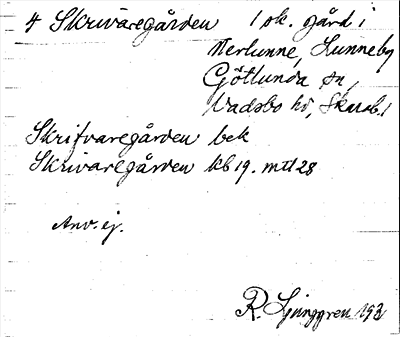 4 Skrivaregården 1 sk. gård i
Nerlunne, Lunneby
Götlunda sn,
Vadsbo hd, Skarab. l
Skrifvaregården bek
Skrivaregården kb 19. mtl 28
Anv. ej.
R. Ljunggren 193